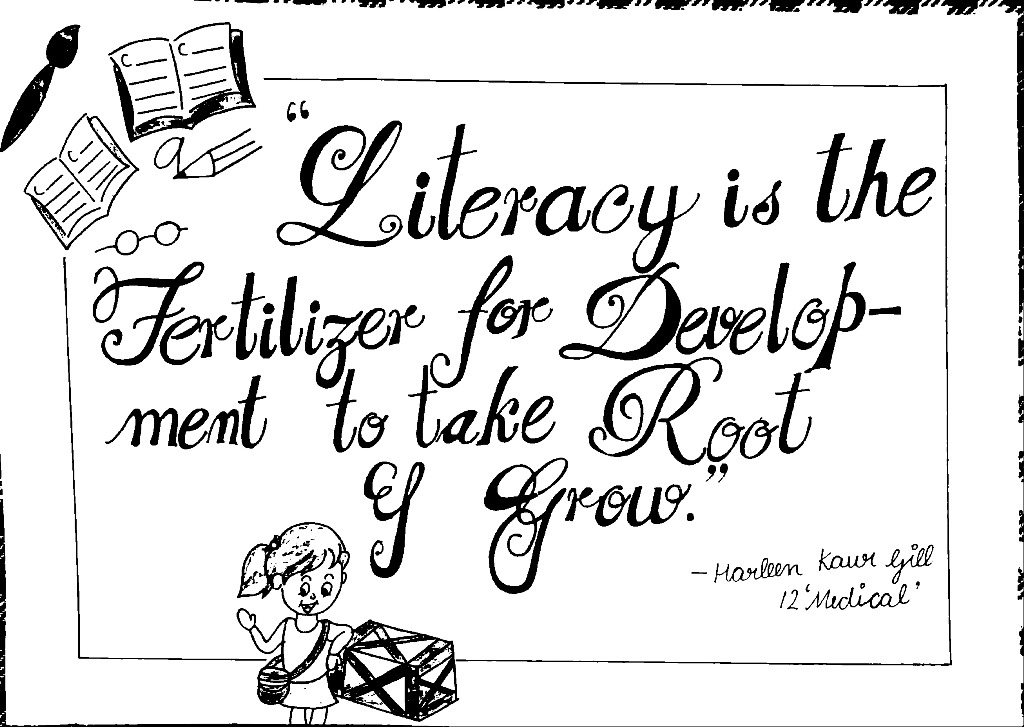 “Literacy is the
Fertilizer for Develop-
ment to take Root
& Grow.”
- Harleen Kaur Gill
12 'Medical'